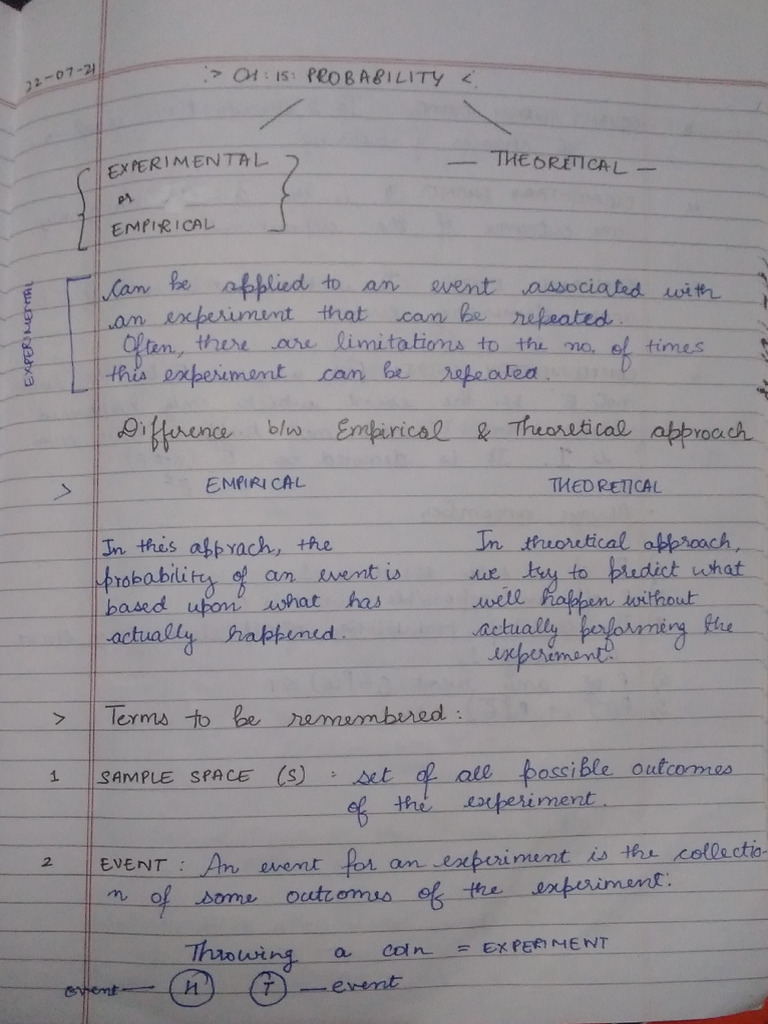 22-07-21
:> CH: 15: PROBABILITY <:
EXPERIMENTAL
or
EMPIRICAL
— THEORETICAL —
EXPERIMENTAL
Can be applied to an event associated with
an experiment that can be repeated.
Often, there are limitations to the no. of times
this experiment can be repeated.
Difference b/w Empirical & Theoretical approach
> EMPIRICAL THEORETICAL
In this apprach, the
probability of an event is
based upon what has
actually happened.
In theoretical approach,
we try to predict what
will happen without
actually performing the
experiment.
> Terms to be remembered:
1 SAMPLE SPACE (S) : set of all possible outcomes
of the experiment.
2 EVENT : An event for an experiment is the collectio-
n of some outcomes of the experiment.
Throwing a coin = EXPERIMENT
event — H T — event